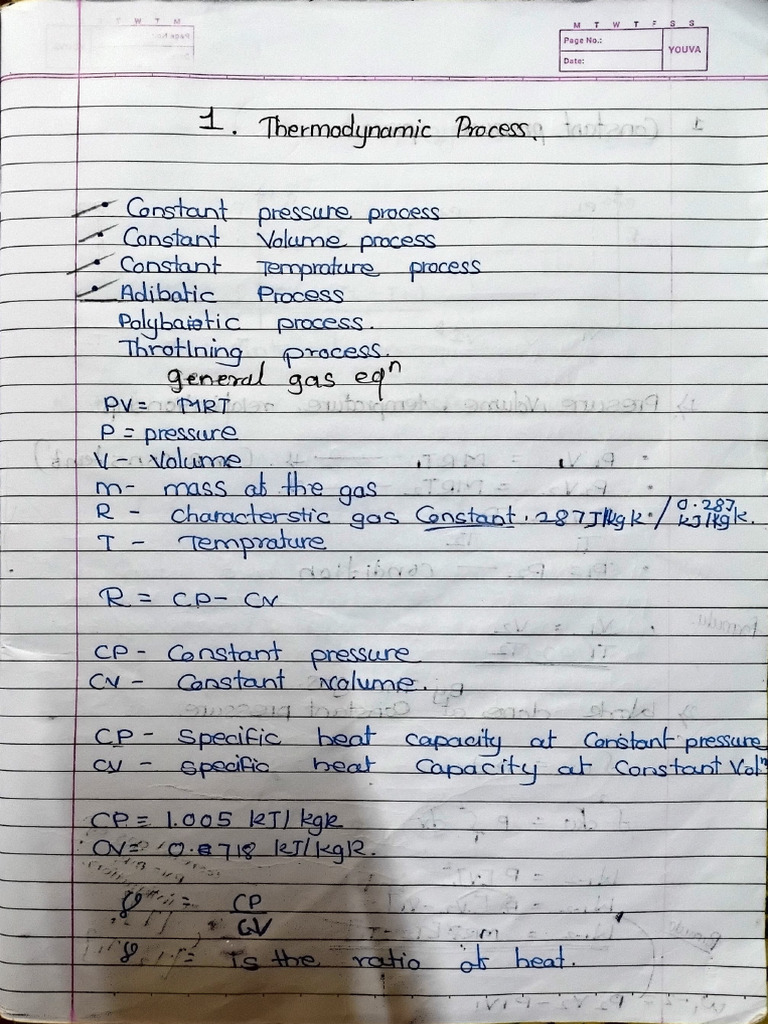 M T W T F S S
Page No.:
Date:
YOUVA
1. Thermodynamic Process.
Constant pressure process
Constant Volume process
Constant Temprature process
Adibatic Process
Polybaiotic process.
Throtlning process.
general gas eqⁿ
PV = MRT
P = pressure
V - Volume
m - mass of the gas
R - characterstic gas Constant. 287 J/kgk. / 0.287 kJ/kgk.
T - Temprature
R = CP - CV
CP - Constant pressure
CV - Constant volume.
CP - Specific heat capacity at Constant pressure
CV - specific heat Capacity at Constant Volⁿ
CP = 1.005 kJ/kgk
CV = 0.718 kJ/kgk.
γ = CP
CV
γ = is the ratio of heat.